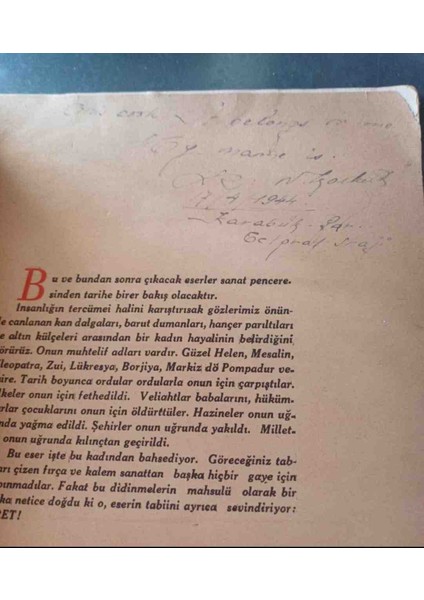 it belongs to me
My name is.
1944
Karabük
Bu ve bundan sonra çıkacak eserler sanat pencere-
sinden tarihe birer bakış olacaktır.
İnsanlığın tercümei halini karıştırısak gözlerimiz önün-
de canlanan kan dalgaları, barut dumanları, hançer parıltıları
e altın külçeleri arasından bir kadın hayalinin belirdiğini
örürüz. Onun muhtelif adları vardır. Güzel Helen, Mesalin,
leopatra, Zui, Lükresya, Borjiya, Markiz dö Pompadur ve-
ire. Tarih boyunca ordular ordularla onun için çarpıştılar.
lkeler onun için fethedildi. Veliahtlar babalarını, hüküm-
rlar çocuklarını onun için öldürttüler. Hazineler onun uğ-
nda yağma edildi. Şehirler onun uğrunda yakıldı. Millet-
onun uğrunda kılınçtan geçirildi.
Bu eser işte bu kadından bahsediyor. Göreceğiniz tab-
arı çizen fırça ve kalem sanattan başka hiçbir gaye için
ınmadılar. Fakat bu didinmelerin mahsulü olarak bir
ka netice doğdu ki o, eserin tabiini ayrıca sevindiriyor:
RET!